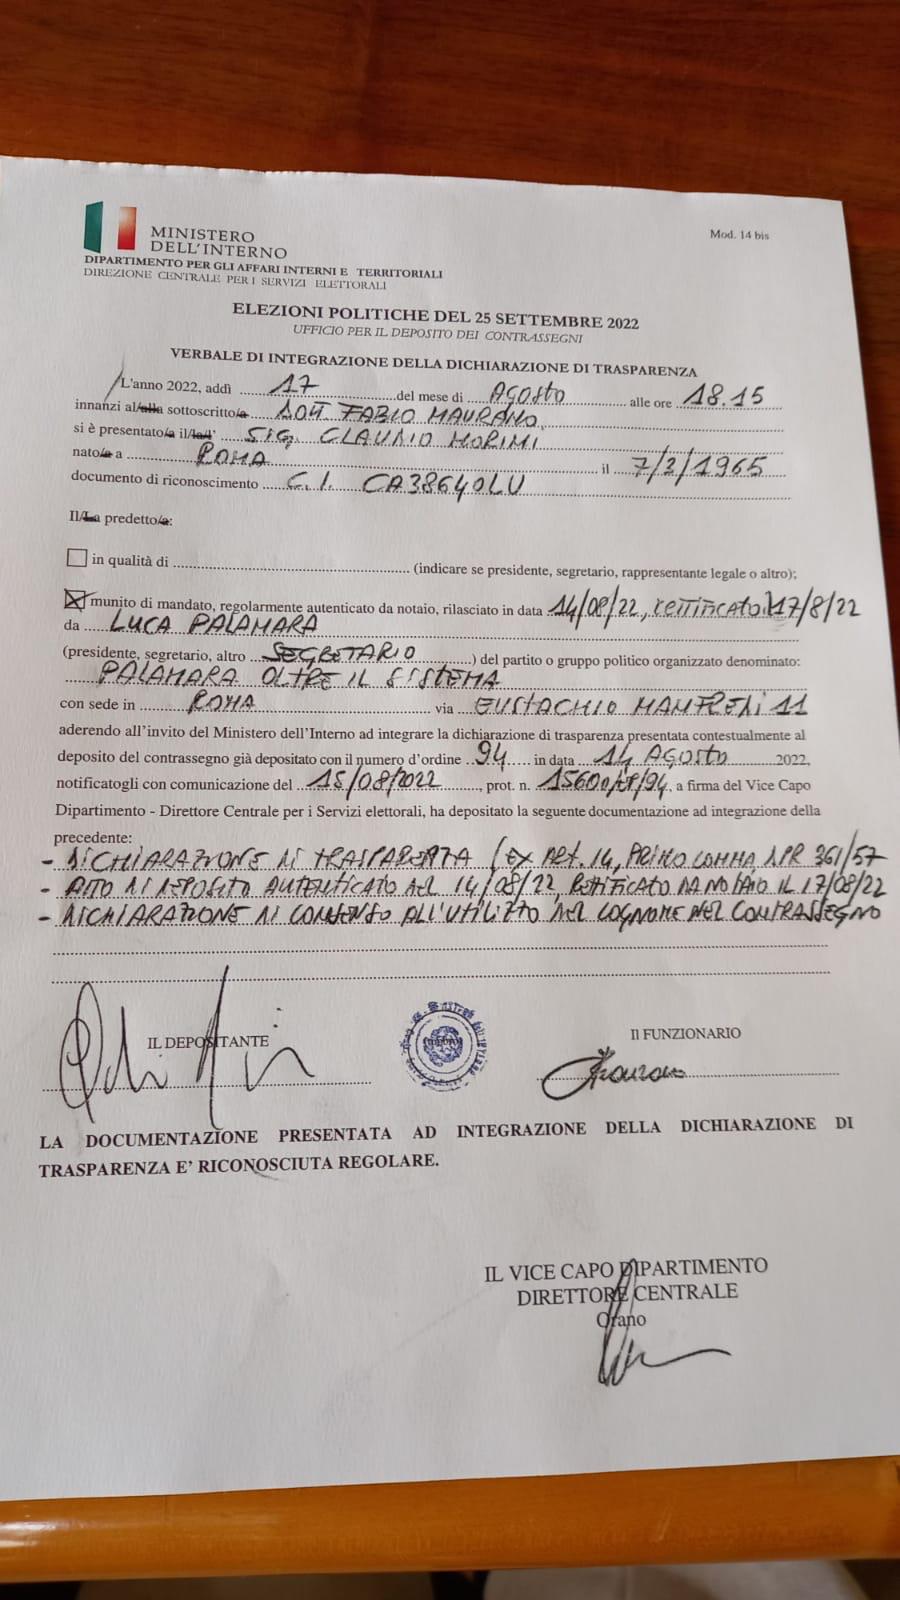 MINISTERO
DELL'INTERNO
Mod. 14 bis
DIPARTIMENTO PER GLI AFFARI INTERNI E TERRITORIALI
DIREZIONE CENTRALE PER I SERVIZI ELETTORALI
ELEZIONI POLITICHE DEL 25 SETTEMBRE 2022
UFFICIO PER IL DEPOSITO DEI CONTRASSEGNI
VERBALE DI INTEGRAZIONE DELLA DICHIARAZIONE DI TRASPARENZA
L'anno 2022, addì 17 del mese di AGOSTO alle ore 18.15
innanzi al/alla sottoscritto/a DOTT FABIO MAURANO
si è presentato/a il/la/l' SIG. CLAUDIO MORINI
nato/a a ROMA il 7/2/1965
documento di riconoscimento C.I. CA38640LU
Il/La predetto/a:
in qualità di (indicare se presidente, segretario, rappresentante legale o altro);
munito di mandato, regolarmente autenticato da notaio, rilasciato in data 14/08/22, rettificato il 17/8/22
da LUCA PALAMARA
(presidente, segretario, altro SEGRETARIO) del partito o gruppo politico organizzato denominato:
PALAMARA OLTRE IL SISTEMA
con sede in ROMA via EUSTACHIO MANFREDI 11
aderendo all'invito del Ministero dell'Interno ad integrare la dichiarazione di trasparenza presentata contestualmente al
deposito del contrassegno già depositato con il numero d'ordine 94 in data 14 AGOSTO 2022,
notificatogli con comunicazione del 15/08/2022, prot. n. 15600, a firma del Vice Capo
Dipartimento - Direttore Centrale per i Servizi elettorali, ha depositato la seguente documentazione ad integrazione della
precedente:
- DICHIARAZIONE DI TRASPARENZA (EX ART. 14, PRIMO COMMA DPR 361/57
- ATTO DI DEPOSITO AUTENTICATO DEL 14/08/22, RETTIFICATO DA NOTAIO IL 17/08/22
- DICHIARAZIONE DI CONSENSO ALL'UTILIZZO DEL COGNOME NEL CONTRASSEGNO
IL DEPOSITANTE
Il FUNZIONARIO
LA DOCUMENTAZIONE PRESENTATA AD INTEGRAZIONE DELLA DICHIARAZIONE DI
TRASPARENZA E' RICONOSCIUTA REGOLARE.
IL VICE CAPO DIPARTIMENTO
DIRETTORE CENTRALE
Orano